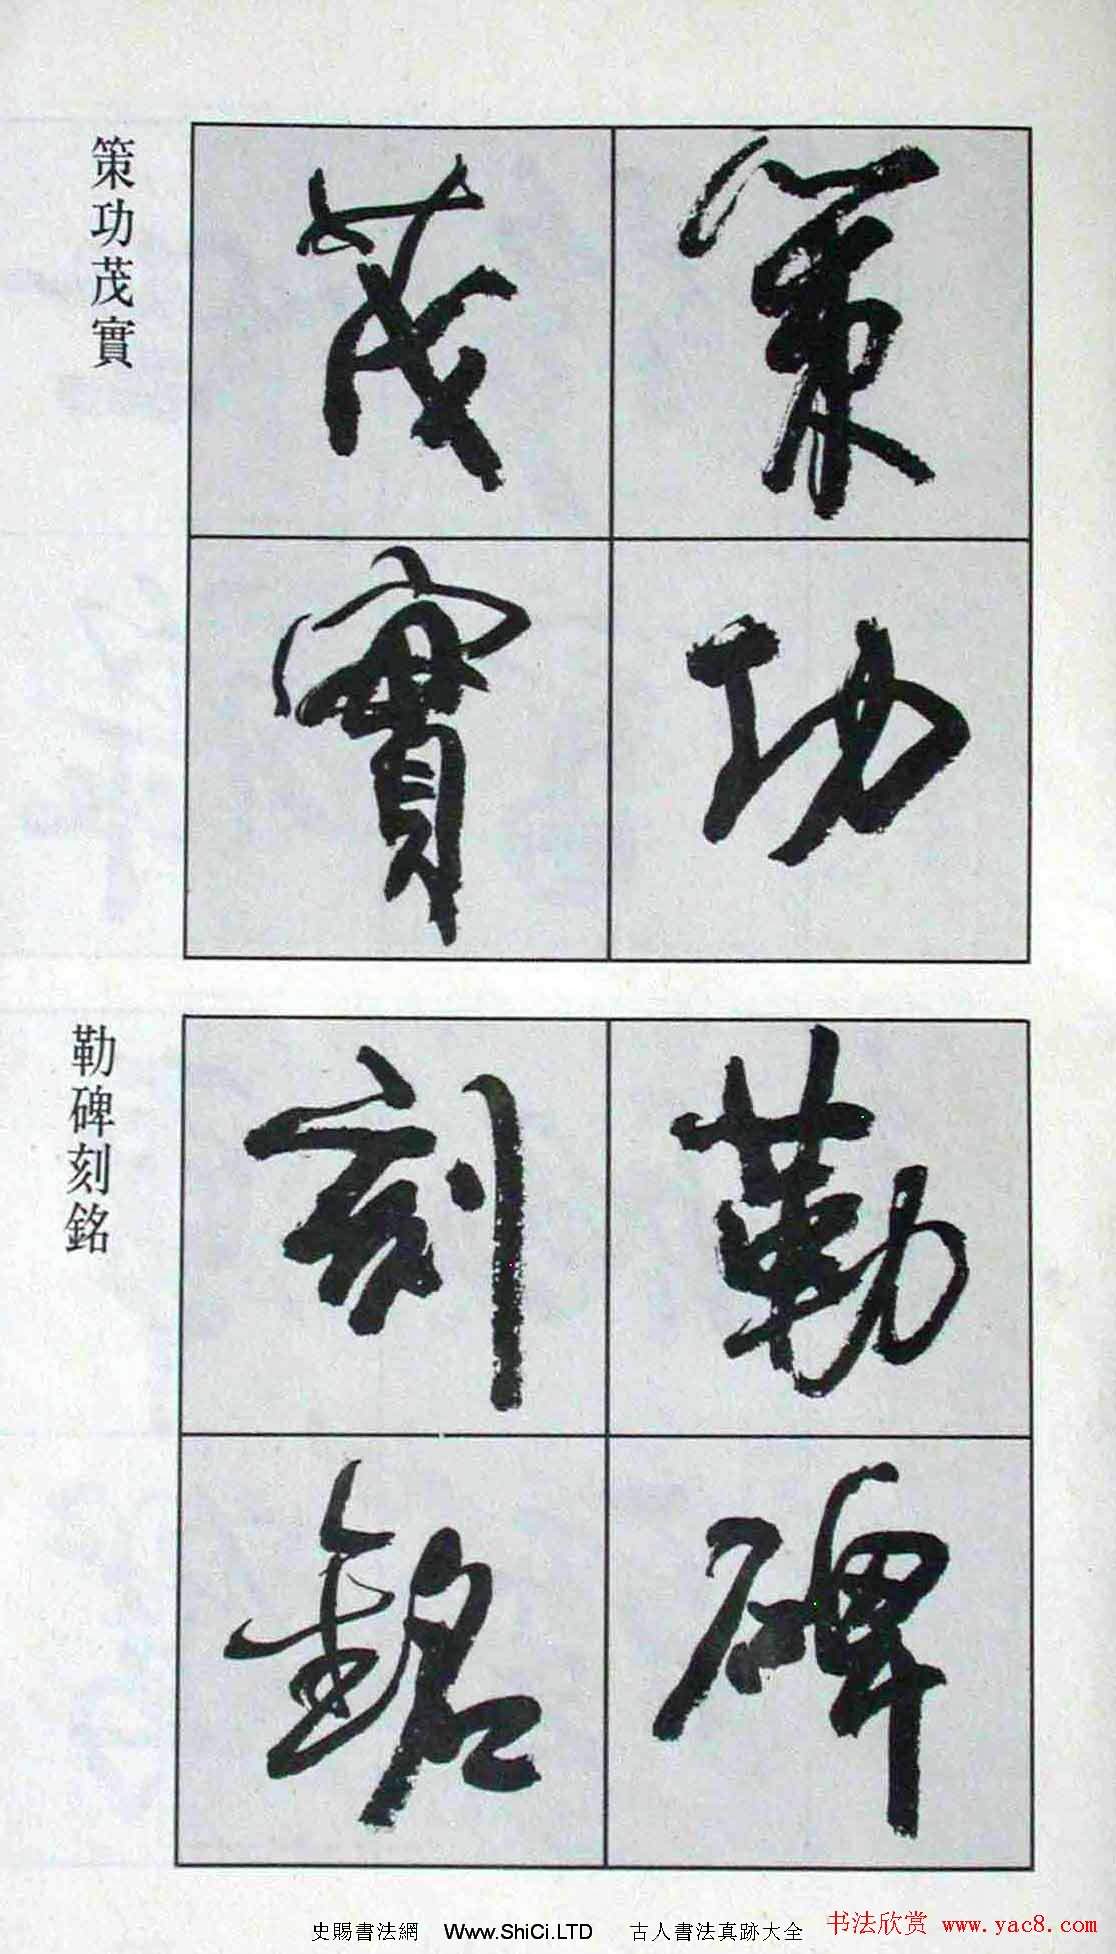 策功
茂實
策功茂實
勒碑
刻銘
勒碑刻銘
史賜書法網 Www.ShiCi.LTD 古人書法真跡大全
书法欣赏 www.yac8.com